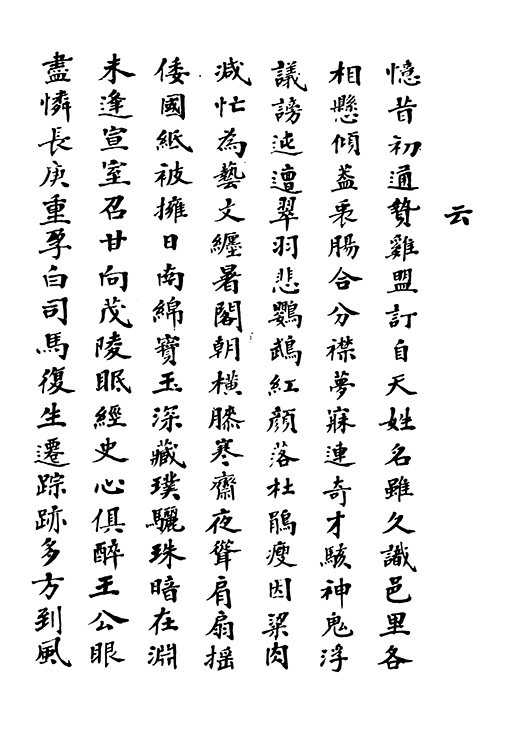 云
憶昔初通贄雞盟訂自天姓名雖久識邑里各
相懸傾蓋衷腸合分襟夢寐連奇才駭神鬼浮
議謗迍邅翠羽悲鸚鵡紅顏落杜鵑瘦因粱肉
減忙為藝文纏暑閣朝橫膝寒齋夜聳肩扇搖
倭國紙被擁日南綿寶玉深藏璞驪珠暗在淵
未逢宣室召甘向茂陵眠經史心俱醉王公眼
盡憐長庚重孕白司馬復生遷踪跡多方到風